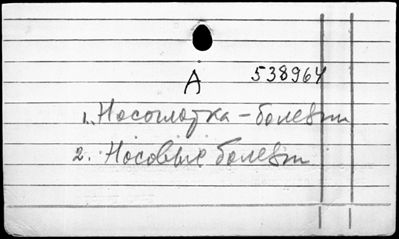 А 538964
1. Носоглотка - болезни
2. Носовые болезни